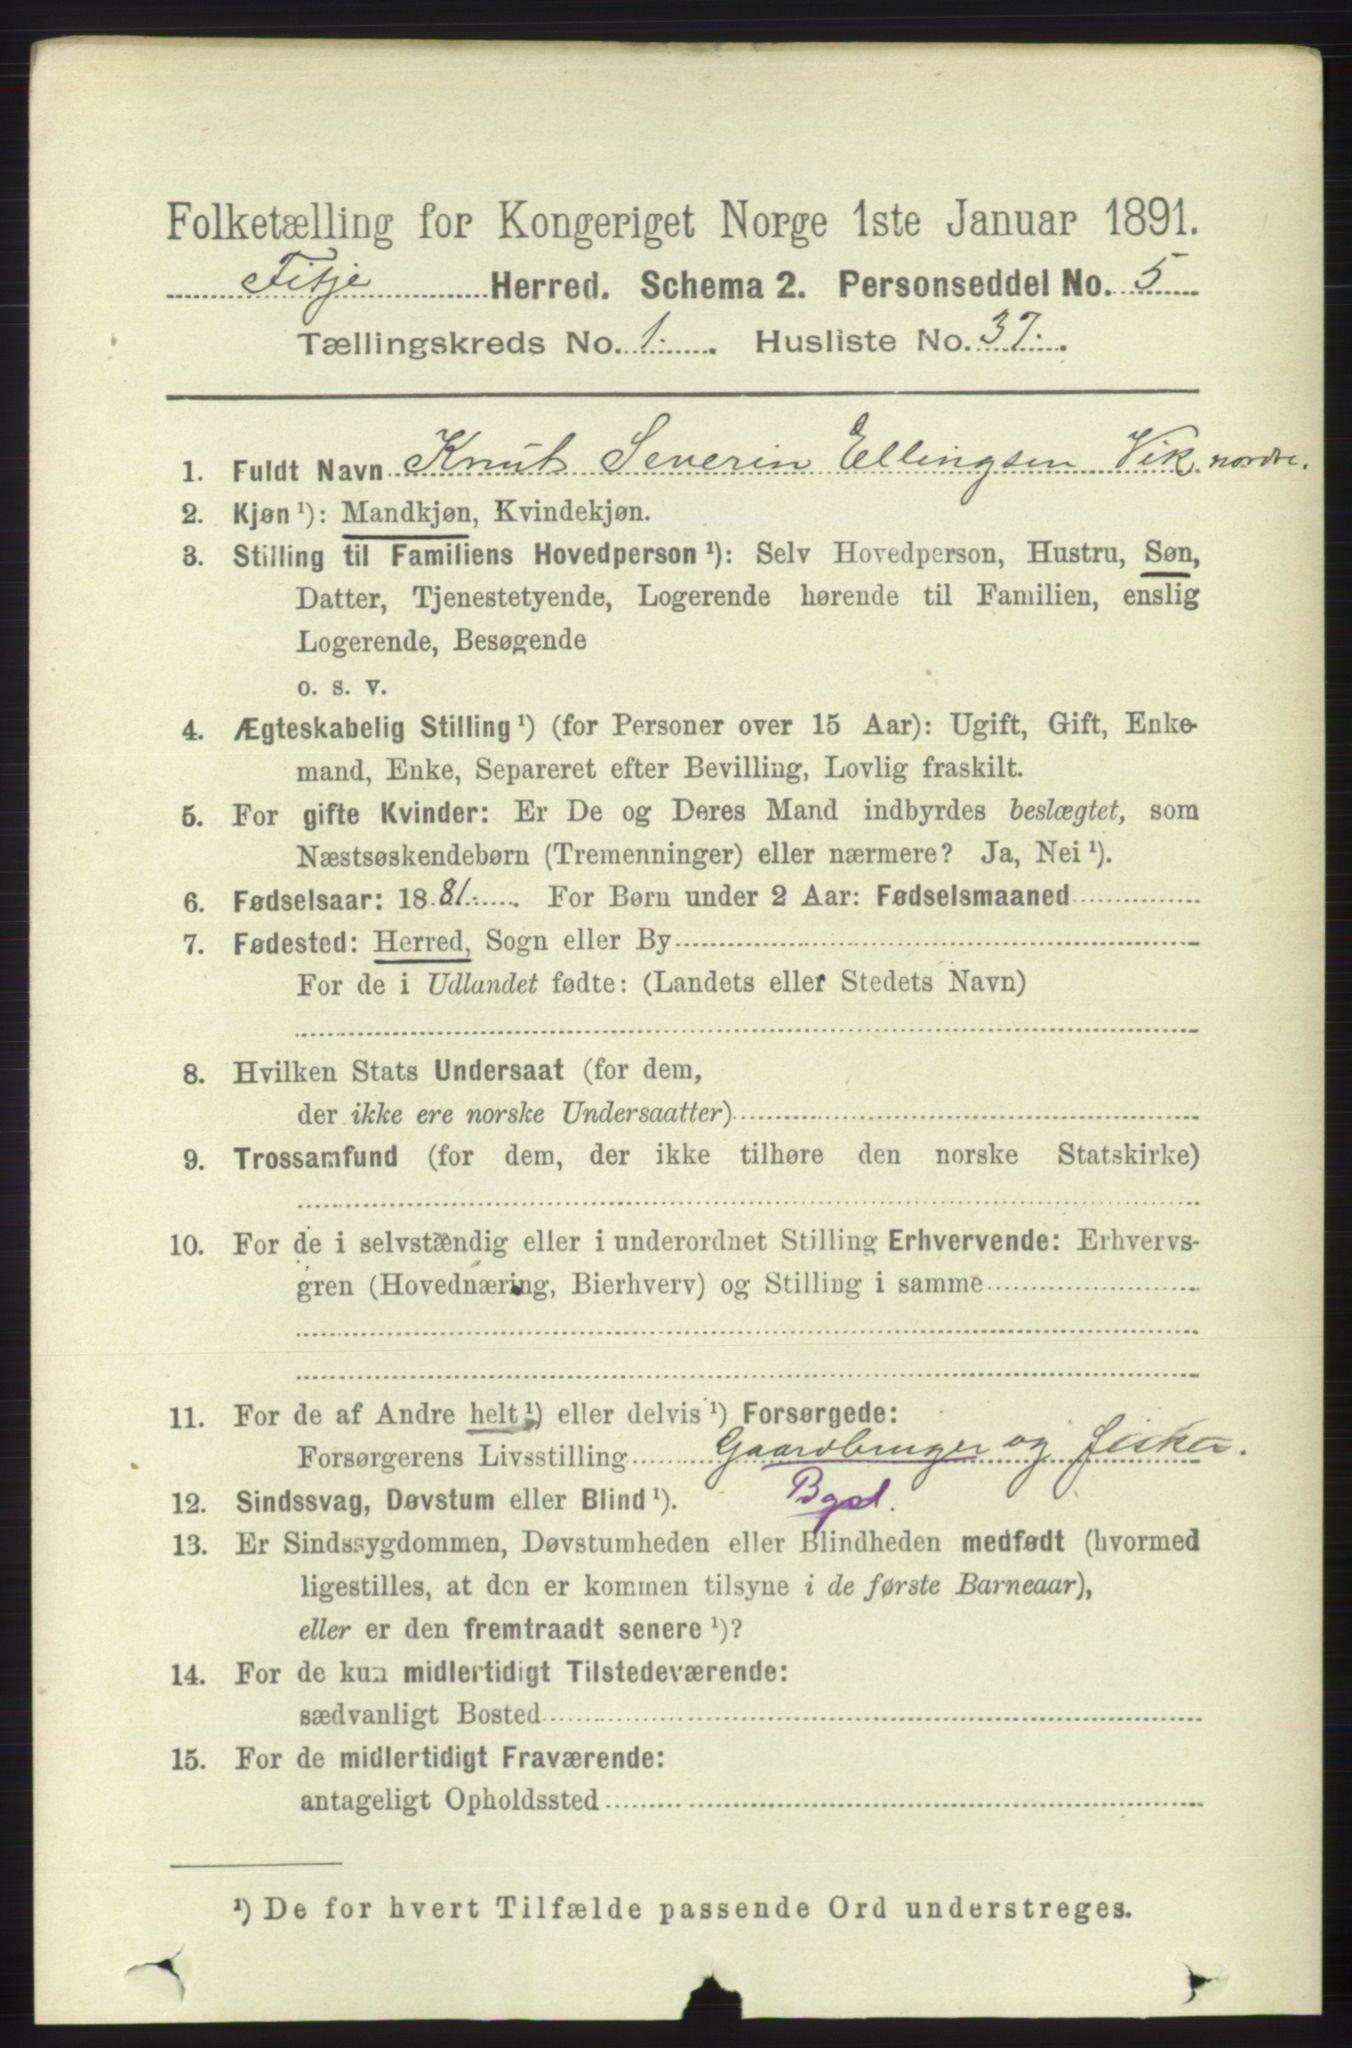 Folketælling for Kongeriget Norge 1ste Januar 1891.
Fitje Herred. Schema 2. Personseddel No. 5
Tællingskreds No. 1. Husliste No. 37.
1. Fuldt Navn Knut Severin Ellingsen Vik nordre.
2. Kjøn ¹): Mandkjøn, Kvindekjøn.
3. Stilling til Familiens Hovedperson ¹): Selv Hovedperson, Hustru, Søn,
Datter, Tjenestetyende, Logerende hørende til Familien, enslig
Logerende, Besøgende
o. s. v.
4. Ægteskabelig Stilling ¹) (for Personer over 15 Aar): Ugift, Gift, Enke-
mand, Enke, Separeret efter Bevilling, Lovlig fraskilt.
5. For gifte Kvinder: Er De og Deres Mand indbyrdes beslægtet, som
Næstsøskendebørn (Tremenninger) eller nærmere? Ja, Nei ¹).
6. Fødselsaar: 1881. For Børn under 2 Aar: Fødselsmaaned
7. Fødested: Herred, Sogn eller By
For de i Udlandet fødte: (Landets eller Stedets Navn)
8. Hvilken Stats Undersaat (for dem,
der ikke ere norske Undersaatter)
9. Trossamfund (for dem, der ikke tilhøre den norske Statskirke)
10. For de i selvstændig eller i underordnet Stilling Erhvervende: Erhvervs-
gren (Hovednæring, Bierhverv) og Stilling i samme
11. For de af Andre helt ¹) eller delvis ¹) Forsørgede:
Forsørgerens Livsstilling Gaardbruger og fisker.
12. Sindssvag, Døvstum eller Blind ¹). Bgsl.
13. Er Sindssygdommen, Døvstumheden eller Blindheden medfødt (hvormed
ligestilles, at den er kommen tilsyne i de første Barneaar),
eller er den fremtraadt senere ¹)?
14. For de kun midlertidigt Tilstedeværende:
sædvanligt Bosted
15. For de midlertidigt Fraværende:
antageligt Opholdssted
¹) De for hvert Tilfælde passende Ord understreges.